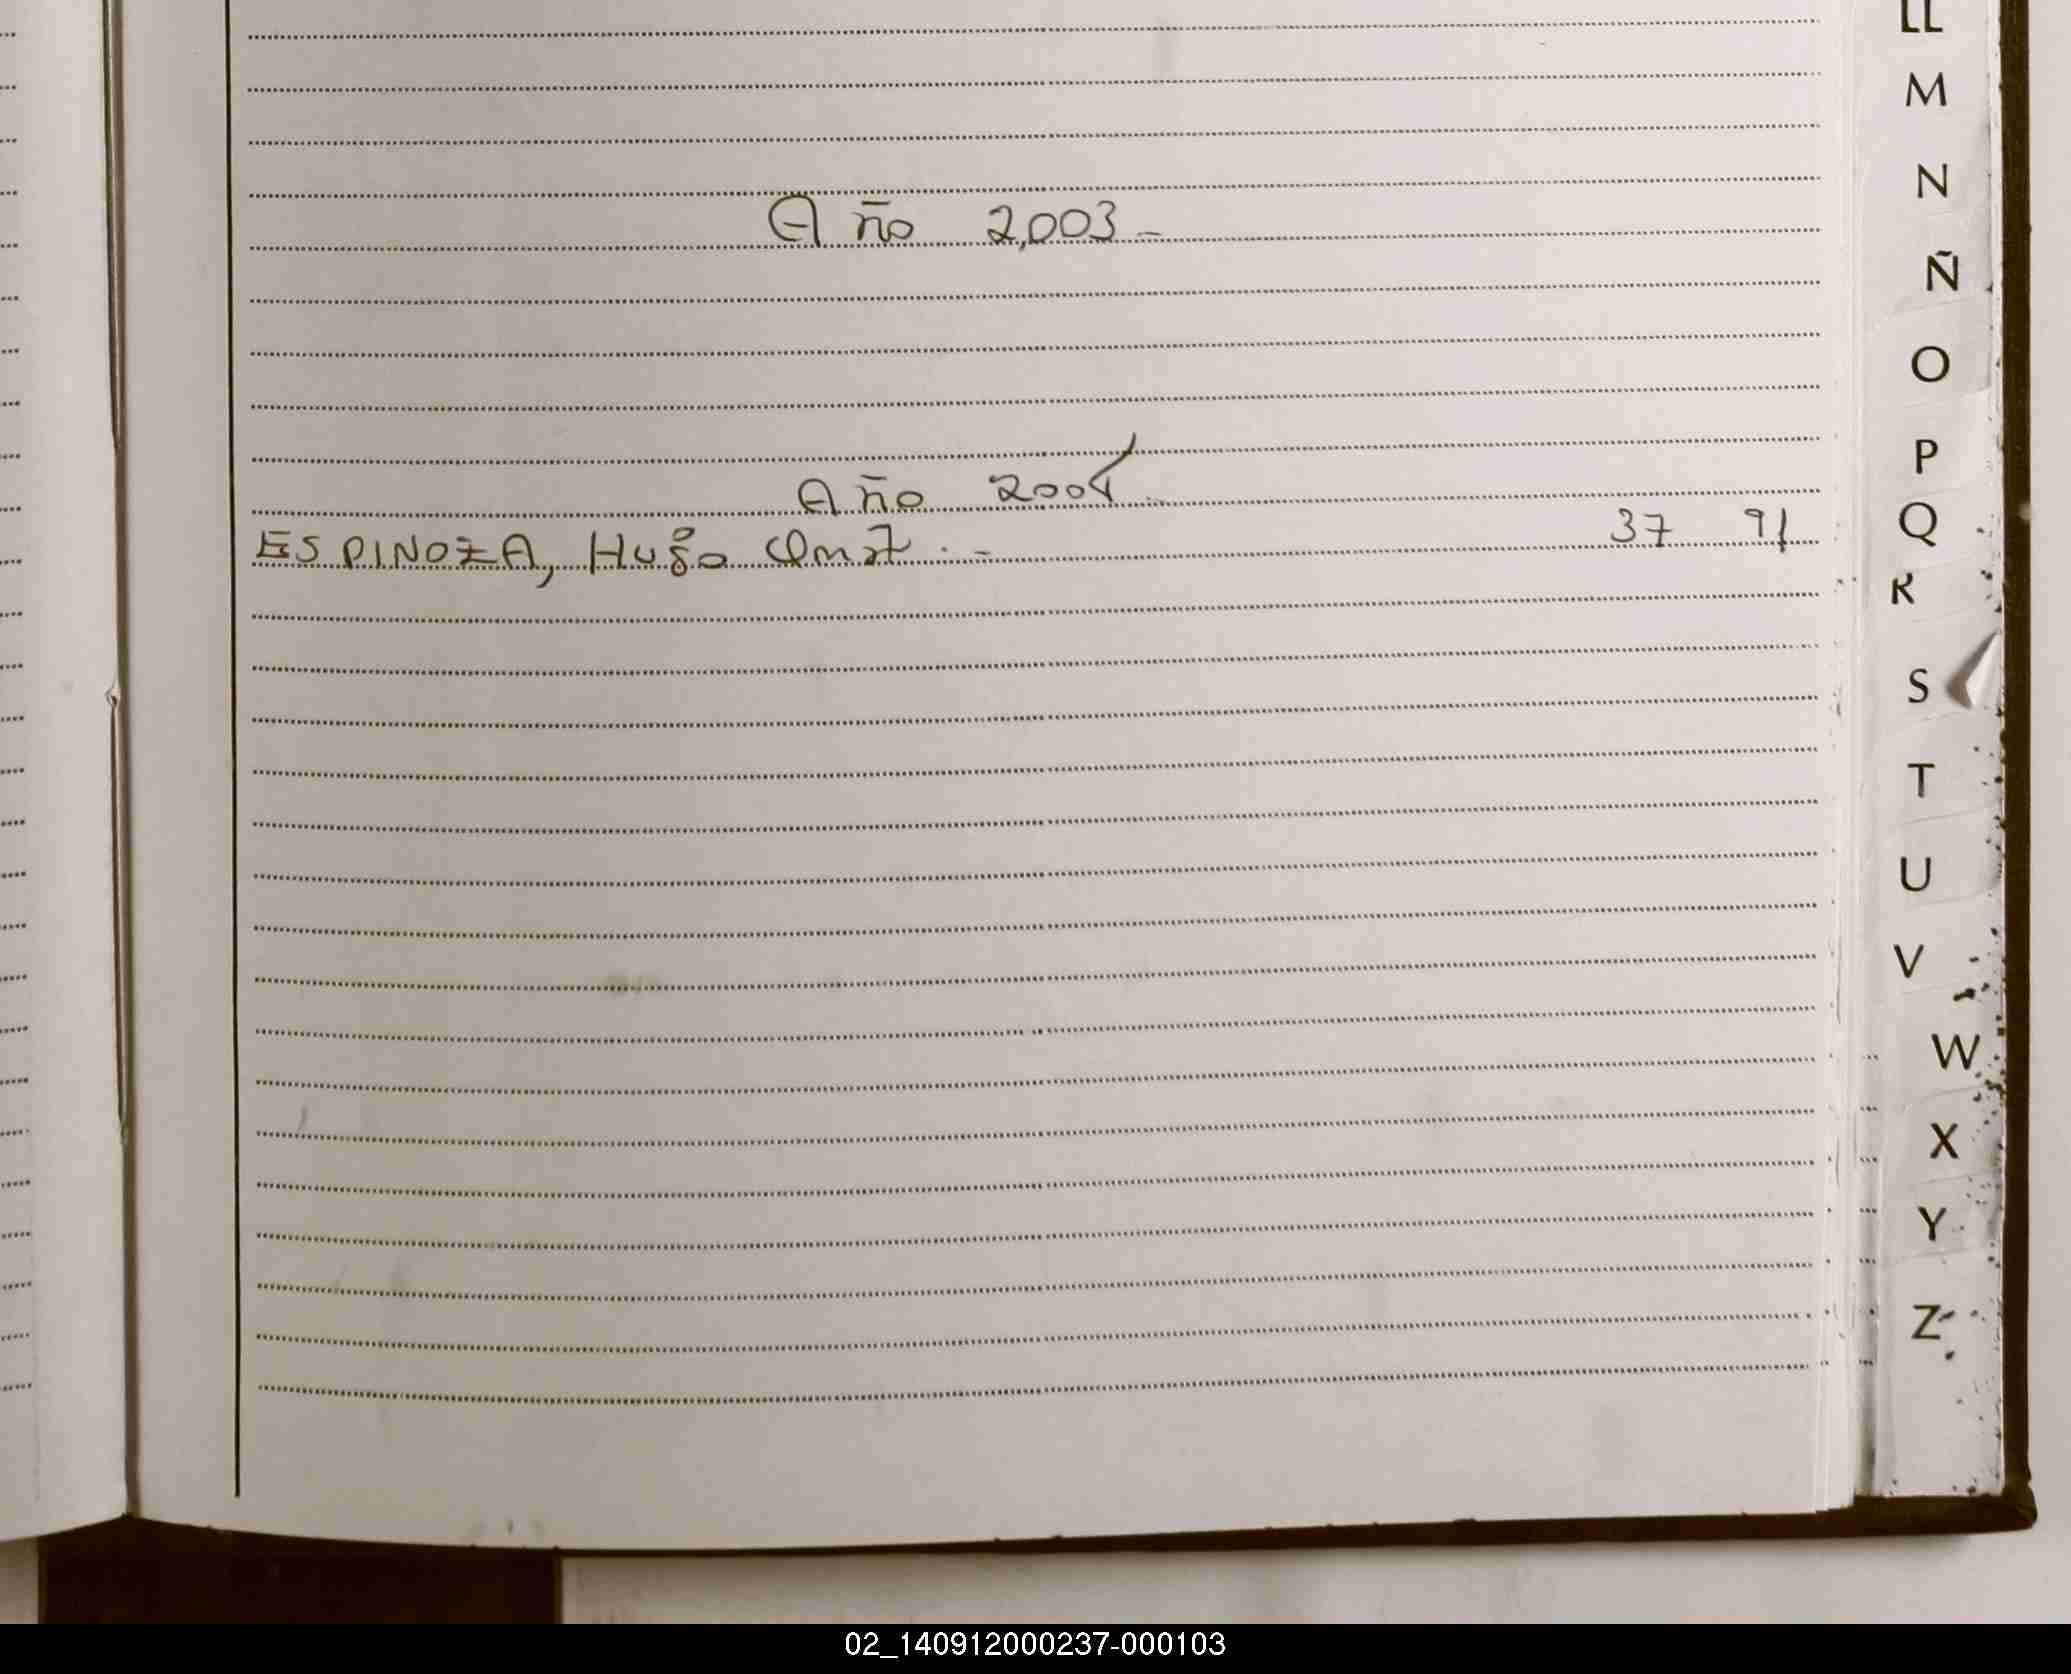 LL
M
N
Año 2,003 -
Ñ
O
P
Año 2004
Q
ESPINOZA, Hugo 37 91
R
S
T
U
V
W
X
Y
Z
02_140912000237-000103